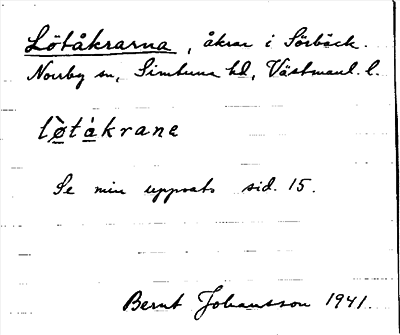 Lötåkrarna, åkrar i Sörbäck.
Norrby sn, Simtuna hd, Västmanl. l.
lø̀tàkrane
Se min uppsats sid. 15.
Bernt Johansson 1941.